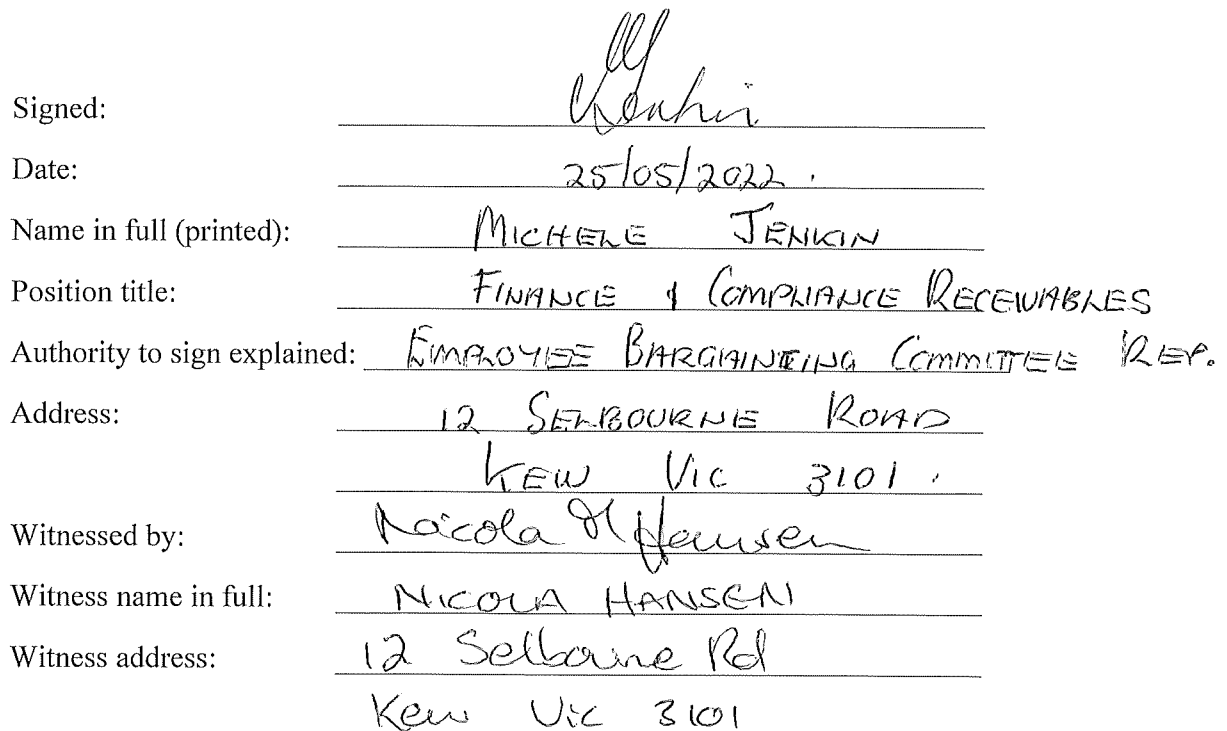 Signed: M Jenkin
Date: 25/05/2022.
Name in full (printed): MICHELE JENKIN
Position title: FINANCE & COMPLIANCE RECEIVABLES
Authority to sign explained: EMPLOYEE BARGAINING COMMITTEE REP.
Address: 12 SELBOURNE ROAD
KEW VIC 3101.
Witnessed by: Nicola M Hansen
Witness name in full: NICOLA HANSEN
Witness address: 12 Selbourne Rd
Kew Vic 3101